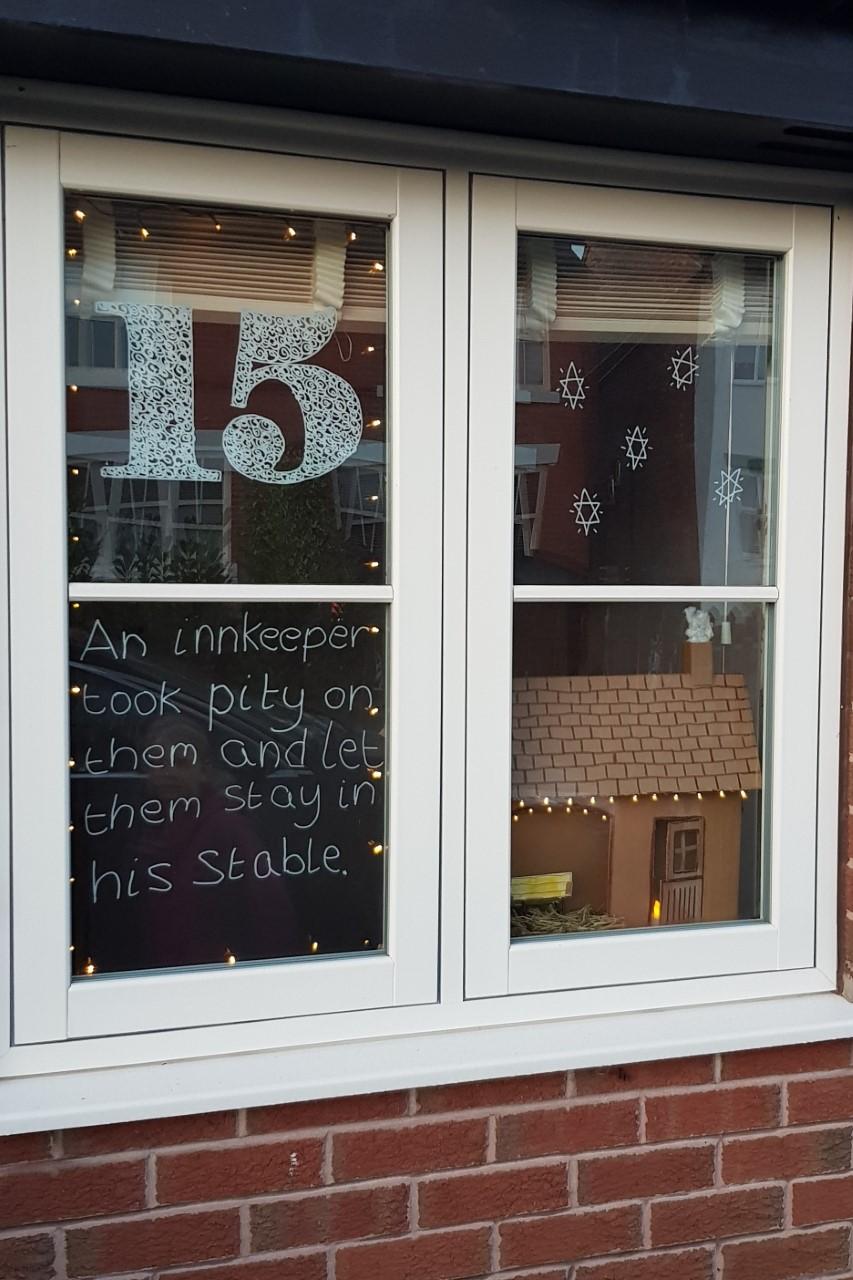 15
An innkeeper
took pity on
them and let
them stay in
his stable.